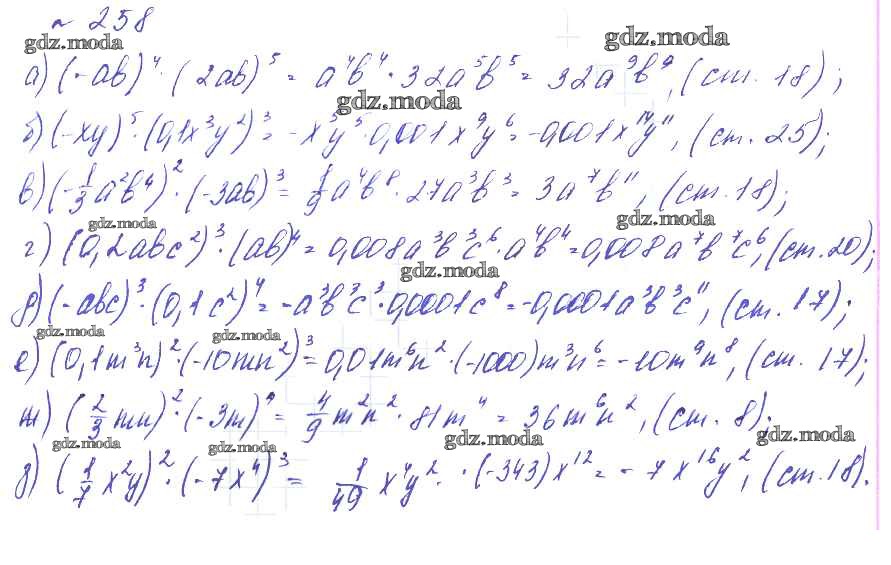 № 258
gdz.moda
gdz.moda
а) (-ab)⁴ · (2ab)⁵ = a⁴b⁴ · 32a⁵b⁵ = 32a⁹b⁹, (ст. 18);
gdz.moda
б) (-xy)⁵ · (0,1x³y²)³ = -x⁵y⁵ · 0,001x⁹y⁶ = -0,001x¹⁴y¹¹, (ст. 25);
в) (-1/3 a²b⁴)² · (-3ab)³ = 1/9 a⁴b⁸ · 27a³b³ = 3a⁷b¹¹, (ст. 18);
gdz.moda
gdz.moda
г) (0,2abc²)³ · (ab)⁴ = 0,008a³b³c⁶ · a⁴b⁴ = 0,008a⁷b⁷c⁶, (ст. 20);
gdz.moda
д) (-abc)³ · (0,1c²)⁴ = -a³b³c³ · 0,0001c⁸ = -0,0001a³b³c¹¹, (ст. 17);
gdz.moda
gdz.moda
е) (0,1m³n)² · (-10mn²)³ = 0,01m⁶n² · (-1000)m³n⁶ = -10m⁹n⁸, (ст. 17);
ж) (2/3 mn)² · (-3m)⁴ = 4/9 m²n² · 81m⁴ = 36m⁶n², (ст. 8);
gdz.moda
gdz.moda
gdz.moda
gdz.moda
з) (1/7 x²y)² · (-7x⁴)³ = 1/49 x⁴y² · · (-343)x¹² = -7x¹⁶y², (ст. 18).